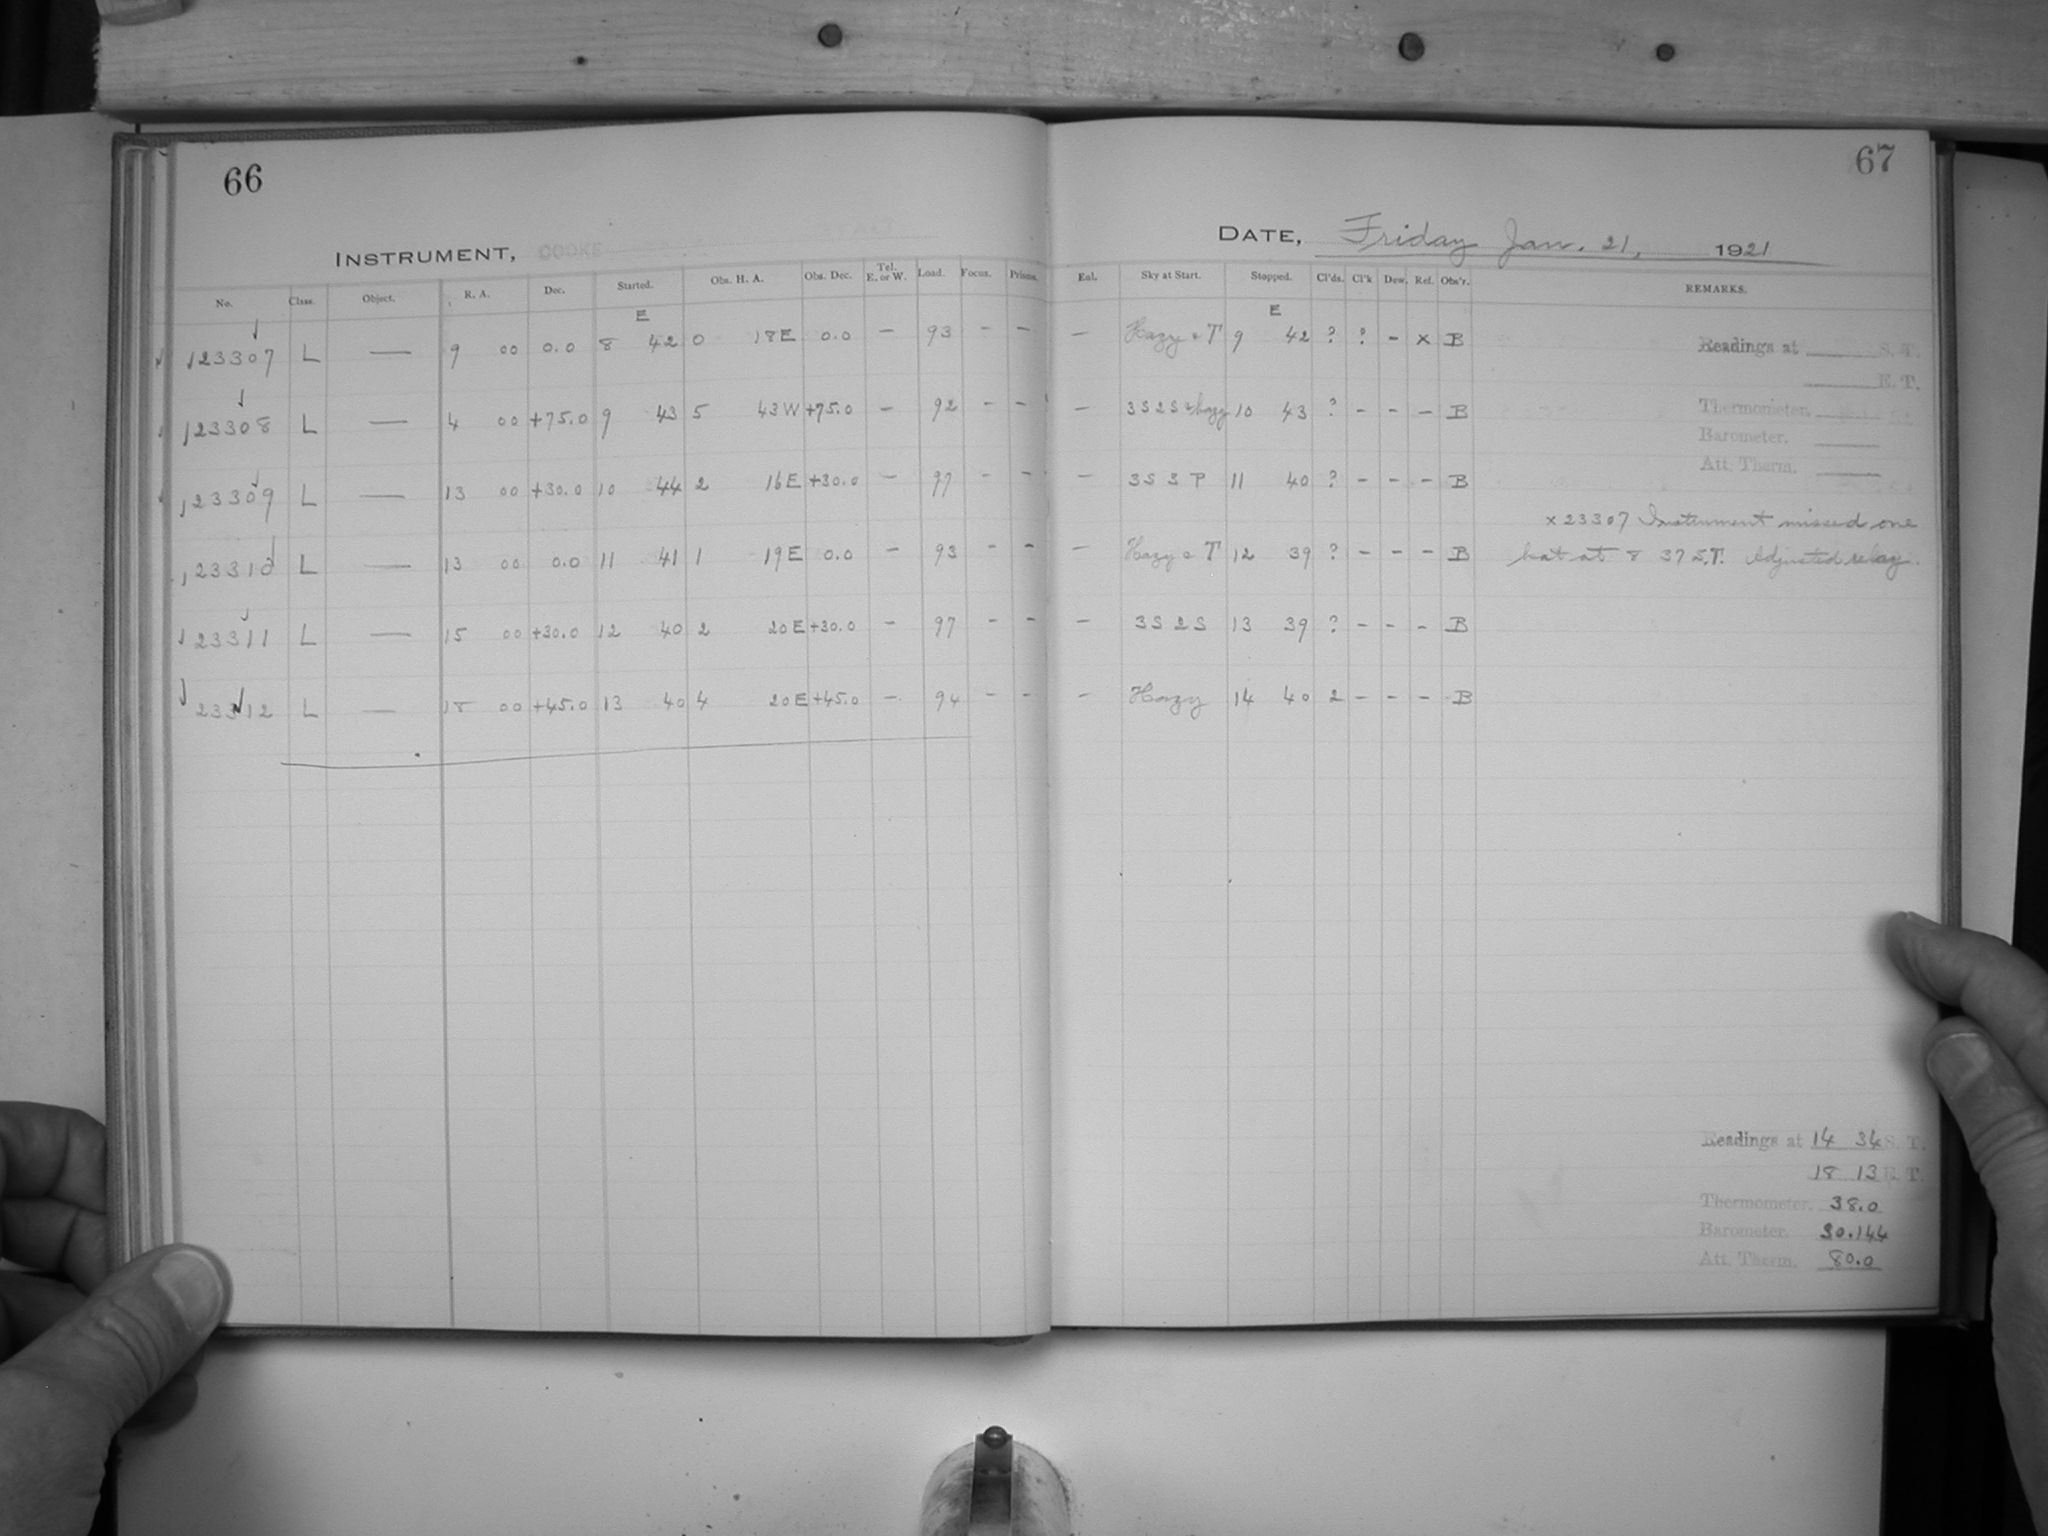 66
INSTRUMENT, COOKE
No. Class. Object. R. A. Dec. Started. Obs. H. A. Obs. Dec. Tel. E. or W. Load. Focus. Prisms.
E
23307 L — 9 00 0.0 8 42 0 18E 0.0 — 93 - -
23308 L — 4 00 +75.0 9 43 5 43W +75.0 - 92 - -
23309 L — 13 00 +30.0 10 44 2 16E +30.0 - 97 - -
23310 L — 13 00 0.0 11 41 1 19E 0.0 - 93 - -
23311 L — 15 00 +30.0 12 40 2 20E +30.0 - 97 - -
23312 L — 18 00 +45.0 13 40 4 20E +45.0 - 94 - -
67
DATE, Friday Jan. 21, 1921
Enl. Sky at Start. Stopped. Cl'ds. Cl'k Dew. Ref. Obs'r. REMARKS.
E
— Hazy & T 9 42 ? ? - x B
— 3S2S & hazy 10 43 ? - - - B
— 3S 3 P 11 40 ? - - - B
— Hazy & T 12 39 ? - - - B
— 3S 2S 13 39 ? - - - B
- Hazy 14 40 2 - - - B
Readings at S. T.
E. T.
Thermometer.
Barometer.
Att. Therm.
x 23307 Instrument missed one
beat at 8 37 S.T. Adjusted relay.
Readings at 14 34 S. T.
18 13 E. T.
Thermometer. 38.0
Barometer. 30.144
Att. Therm. 80.0